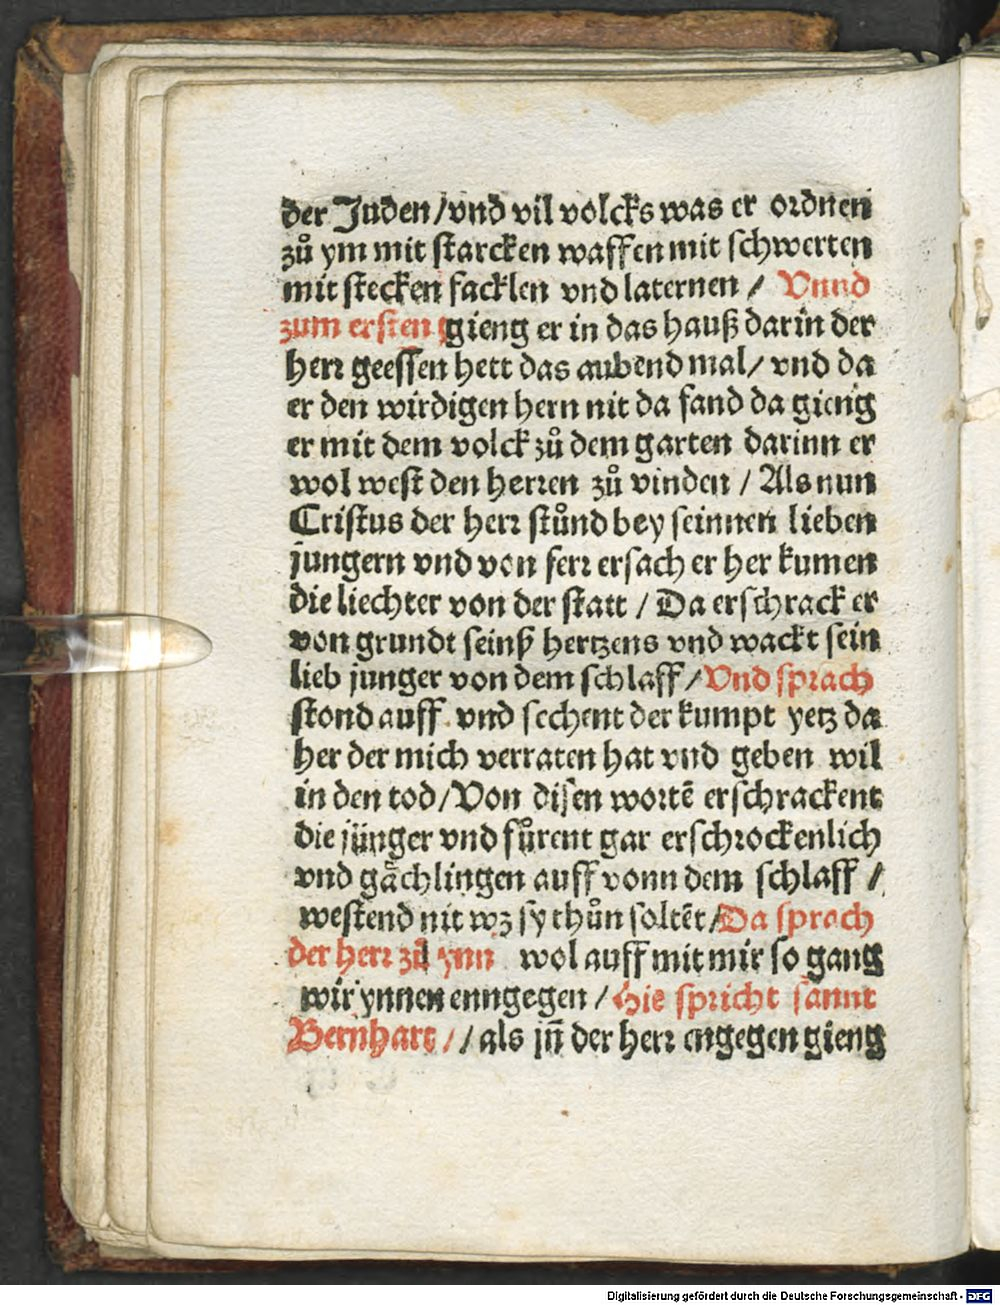 der Juden / vnd vil volcks was er ordnen
zů ym mit starcken waffen mit schwerten
mit stecken facklen vnd laternen / Vnnd
zum ersten gieng er in das hauß darin der
herr geessen hett das aubend mal / vnd da
er den wirdigen hern nit da fand da gieng
er mit dem volck zů dem garten darinn er
wol west den herren zů vinden / Als nun
Cristus der herr stůnd bey seinnen lieben
jungern vnd von ferr ersach er her kumen
die liechter von der statt / Da erschrack er
von grundt seinß hertzens vnd wackt sein
lieb junger von dem schlaff / Vnd sprach
stond auff vnd sechent der kumpt yetz da
her der mich verraten hat vnd geben wil
in den tod / Von disen wortē erschrackent
die jünger vnd fůrent gar erschrockenlich
vnd gächlingen auff vonn dem schlaff /
westend nit wz sy thůn soltēt / Da sprach
der herr zů ynn wol auff mit mir so gang
wir ynnen enngegen / Hie spricht sannt
Bernhart / / als jn̄ der herr engegen gieng
Digitalisierung gefördert durch die Deutsche Forschungsgemeinschaft - DFG